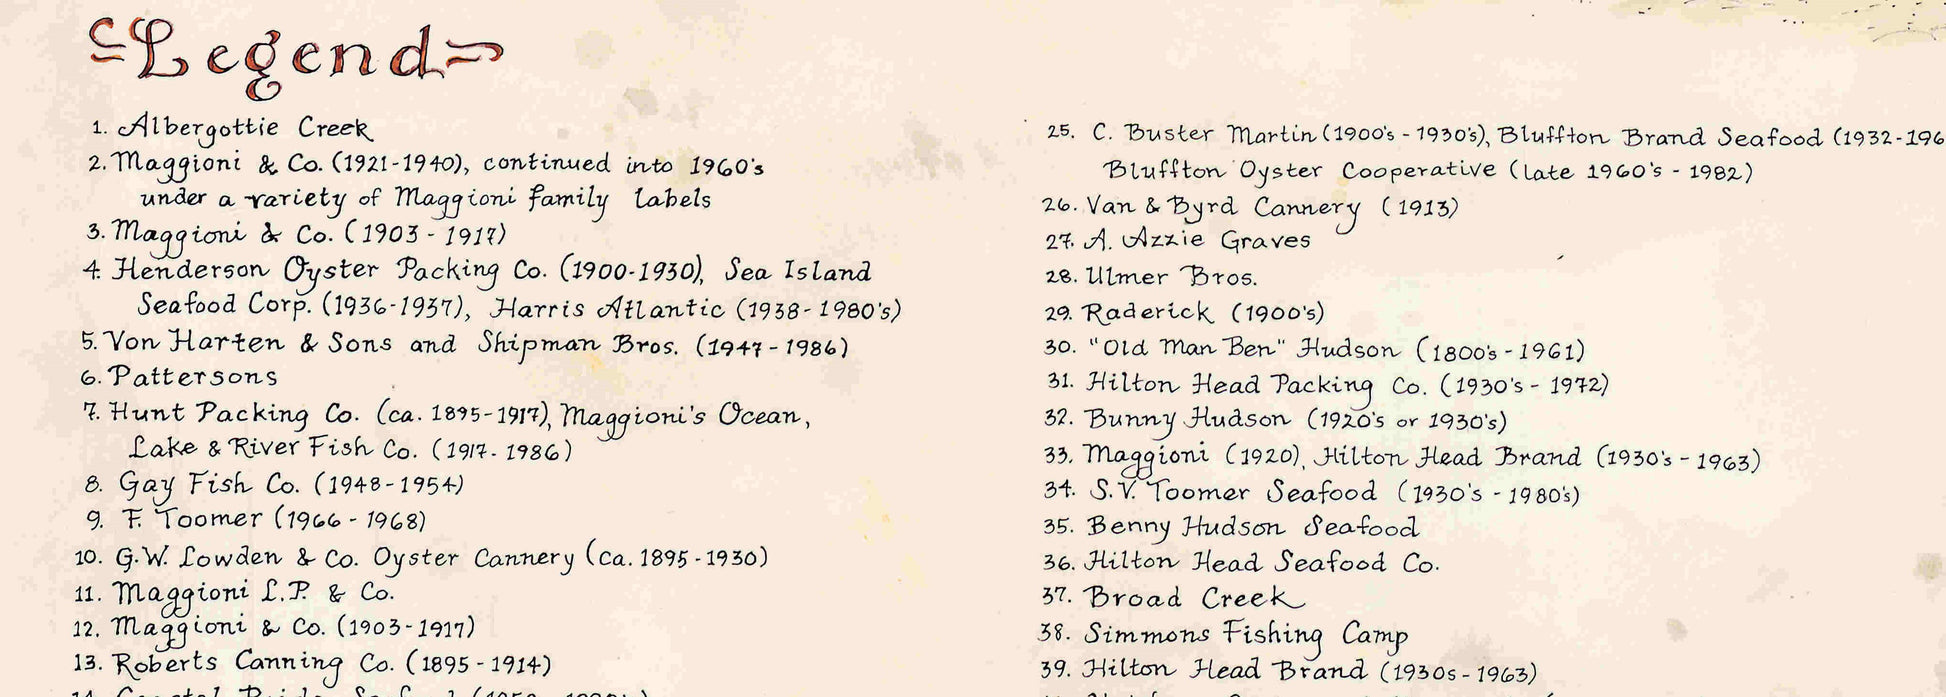 Legend
1. Albergottie Creek
2. Maggioni & Co. (1921-1940), continued into 1960's
under a variety of Maggioni family labels
3. Maggioni & Co. (1903 - 1917)
4. Henderson Oyster Packing Co. (1900-1930), Sea Island
Seafood Corp. (1936-1937), Harris Atlantic (1938- 1980's)
5. Von Harten & Sons and Shipman Bros. (1947 - 1986)
6. Pattersons
7. Hunt Packing Co. (ca. 1895-1917), Maggioni's Ocean,
Lake & River Fish Co. (1917- 1986)
8. Gay Fish Co. (1948-1954)
9. F. Toomer (1966 - 1968)
10. G.W. Lowden & Co. Oyster Cannery (ca. 1895 -1930)
11. Maggioni L.P. & Co.
12. Maggioni & Co. (1903-1917)
13. Roberts Canning Co. (1895 - 1914)
25. C. Buster Martin (1900's - 1930's), Bluffton Brand Seafood (1932-196
Bluffton Oyster Cooperative (late 1960's - 1982)
26. Van & Byrd Cannery (1913)
27. A. Azzie Graves
28. Ulmer Bros.
29. Raderick (1900's)
30. "Old Man Ben" Hudson (1800's -1961)
31. Hilton Head Packing Co. (1930's - 1972)
32. Bunny Hudson (1920's or 1930's)
33. Maggioni (1920), Hilton Head Brand (1930's - 1963)
34. S.V. Toomer Seafood (1930's - 1980's)
35. Benny Hudson Seafood
36. Hilton Head Seafood Co.
37. Broad Creek
38. Simmons Fishing Camp
39. Hilton Head Brand (1930s - 1963)